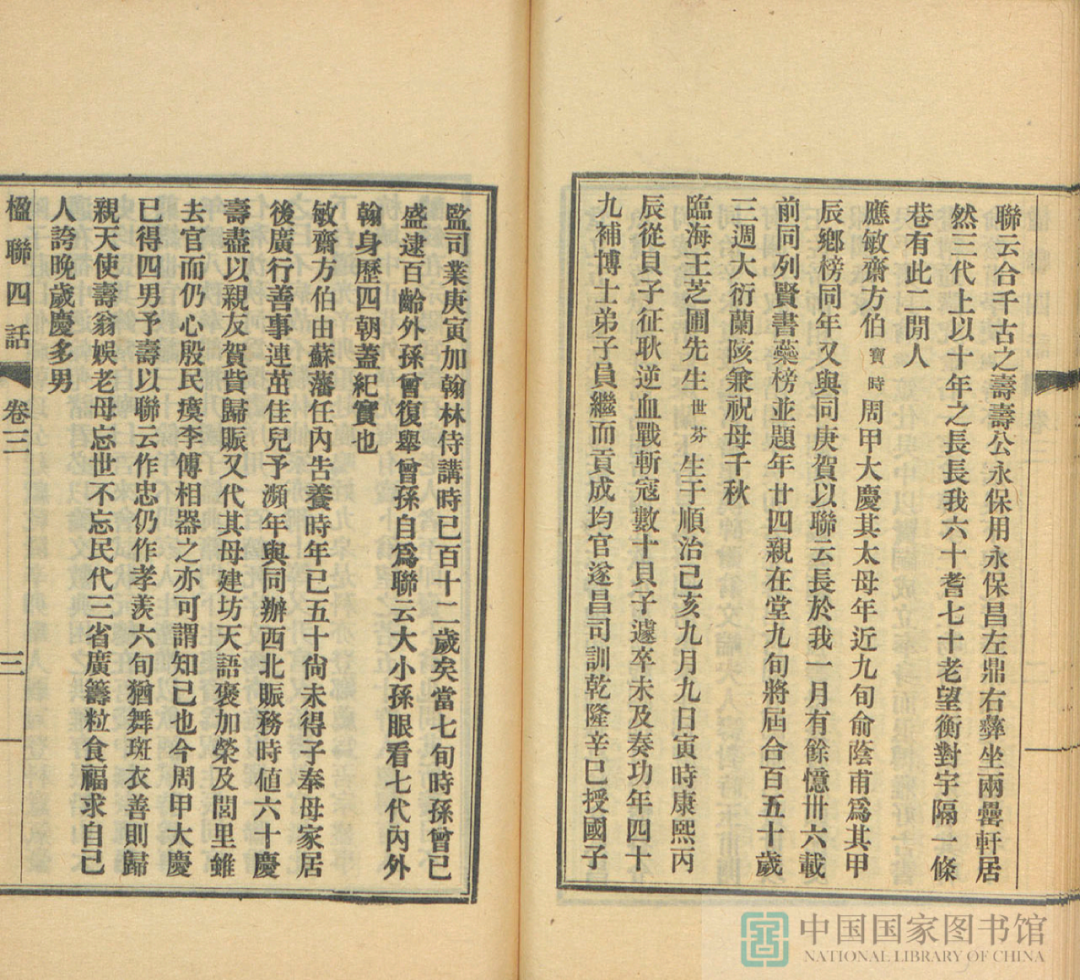 聯云合千古之壽壽公永保用永保昌左鼎右彝坐兩罍軒居
然三代上以十年之長長我六十耆七十老望衡對宇隔一條
巷有此二閒人
應敏齋方伯寶時周甲大慶其太母年近九旬俞蔭甫爲其甲
辰鄉榜同年又與同庚賀以聯云長於我一月有餘憶卅六載
前同列賢書蘂榜並題年廿四親在堂九旬將屆合百五十歲
三週大衍蘭陔兼祝母千秋
臨海王芝圃先生世芬生于順治己亥九月九日寅時康熙丙
辰從貝子征耿逆血戰斬寇數十貝子遽卒未及奏功年四十
九補博士弟子員繼而貢成均官遂昌司訓乾隆辛巳授國子
監司業庚寅加翰林侍講時已百十二歲矣當七旬時孫曾已
盛逮百齡外孫曾復舉曾孫自爲聯云大小孫眼看七代內外
翰身歷四朝蓋紀實也
敏齋方伯由蘇藩任內告養時年已五十尙未得子奉母家居
後廣行善事連茁佳兒予瀕年與同辦西北賑務時値六十慶
壽盡以親友賀貲歸賑又代其母建坊天語褒加榮及閭里雖
去官而仍心殷民瘼李傅相器之亦可謂知已也今周甲大慶
已得四男予壽以聯云作忠仍作孝羨六旬猶舞斑衣善則歸
親天使壽翁娛老母忘世不忘民代三省廣籌粒食福求自己
人誇晚歲慶多男
楹聯四話 卷三 三
中国国家图书馆
NATIONAL LIBRARY OF CHINA